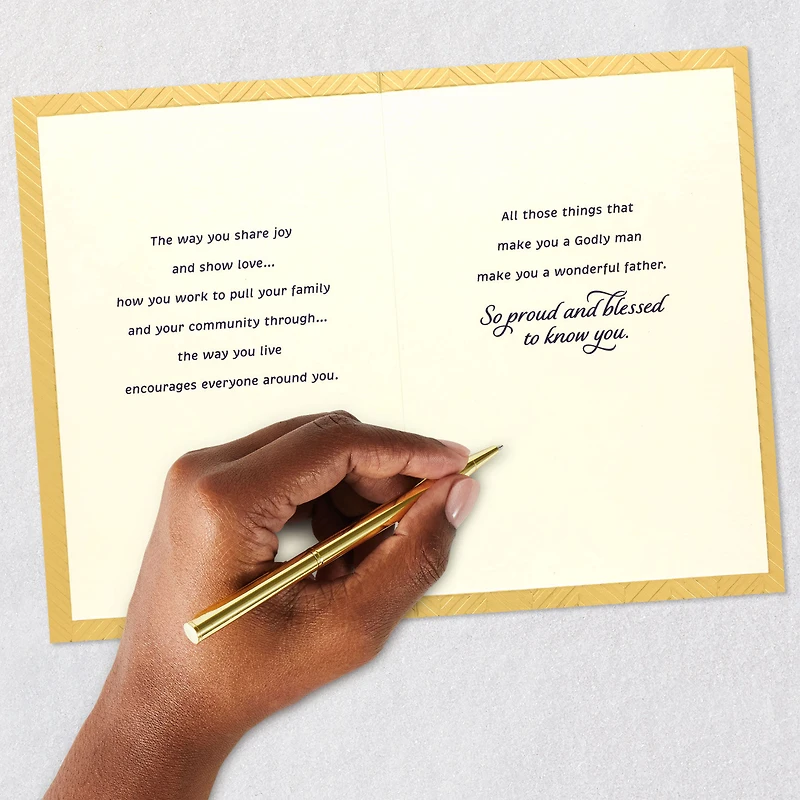 The way you share joy
and show love...
how you work to pull your family
and your community through...
the way you live
encourages everyone around you.
All those things that
make you a Godly man
make you a wonderful father.
So proud and blessed
to know you.